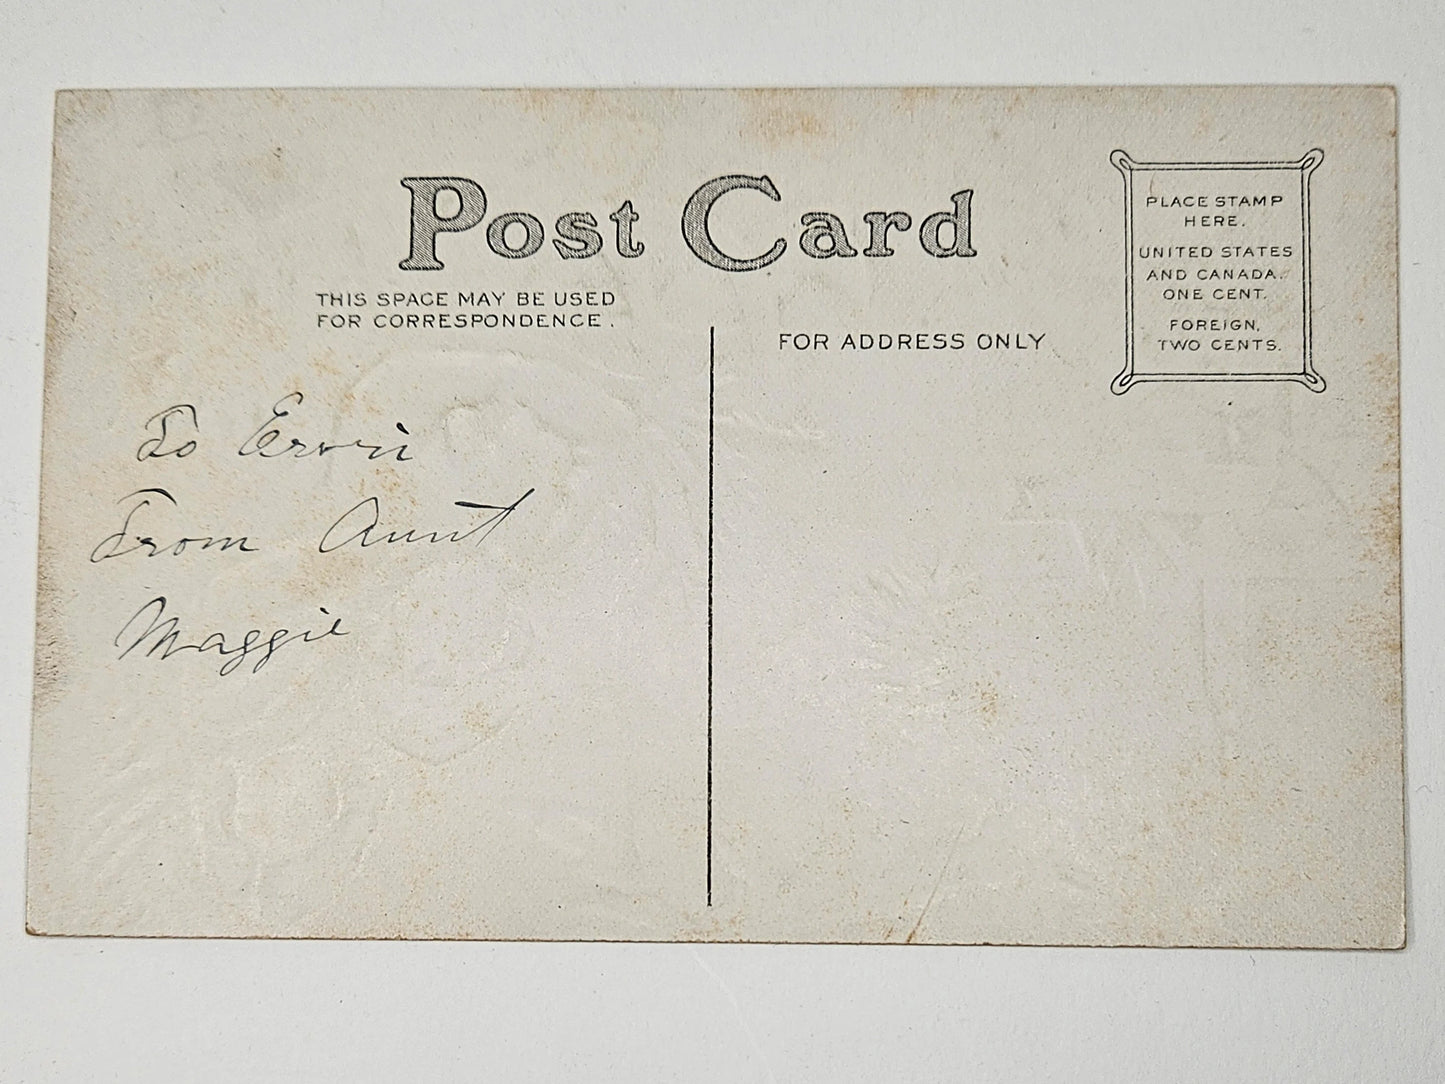 Post Card
THIS SPACE MAY BE USED
FOR CORRESPONDENCE.
FOR ADDRESS ONLY
PLACE STAMP
HERE.
UNITED STATES
AND CANADA.
ONE CENT.
FOREIGN,
TWO CENTS.
To
From Aunt
Maggie